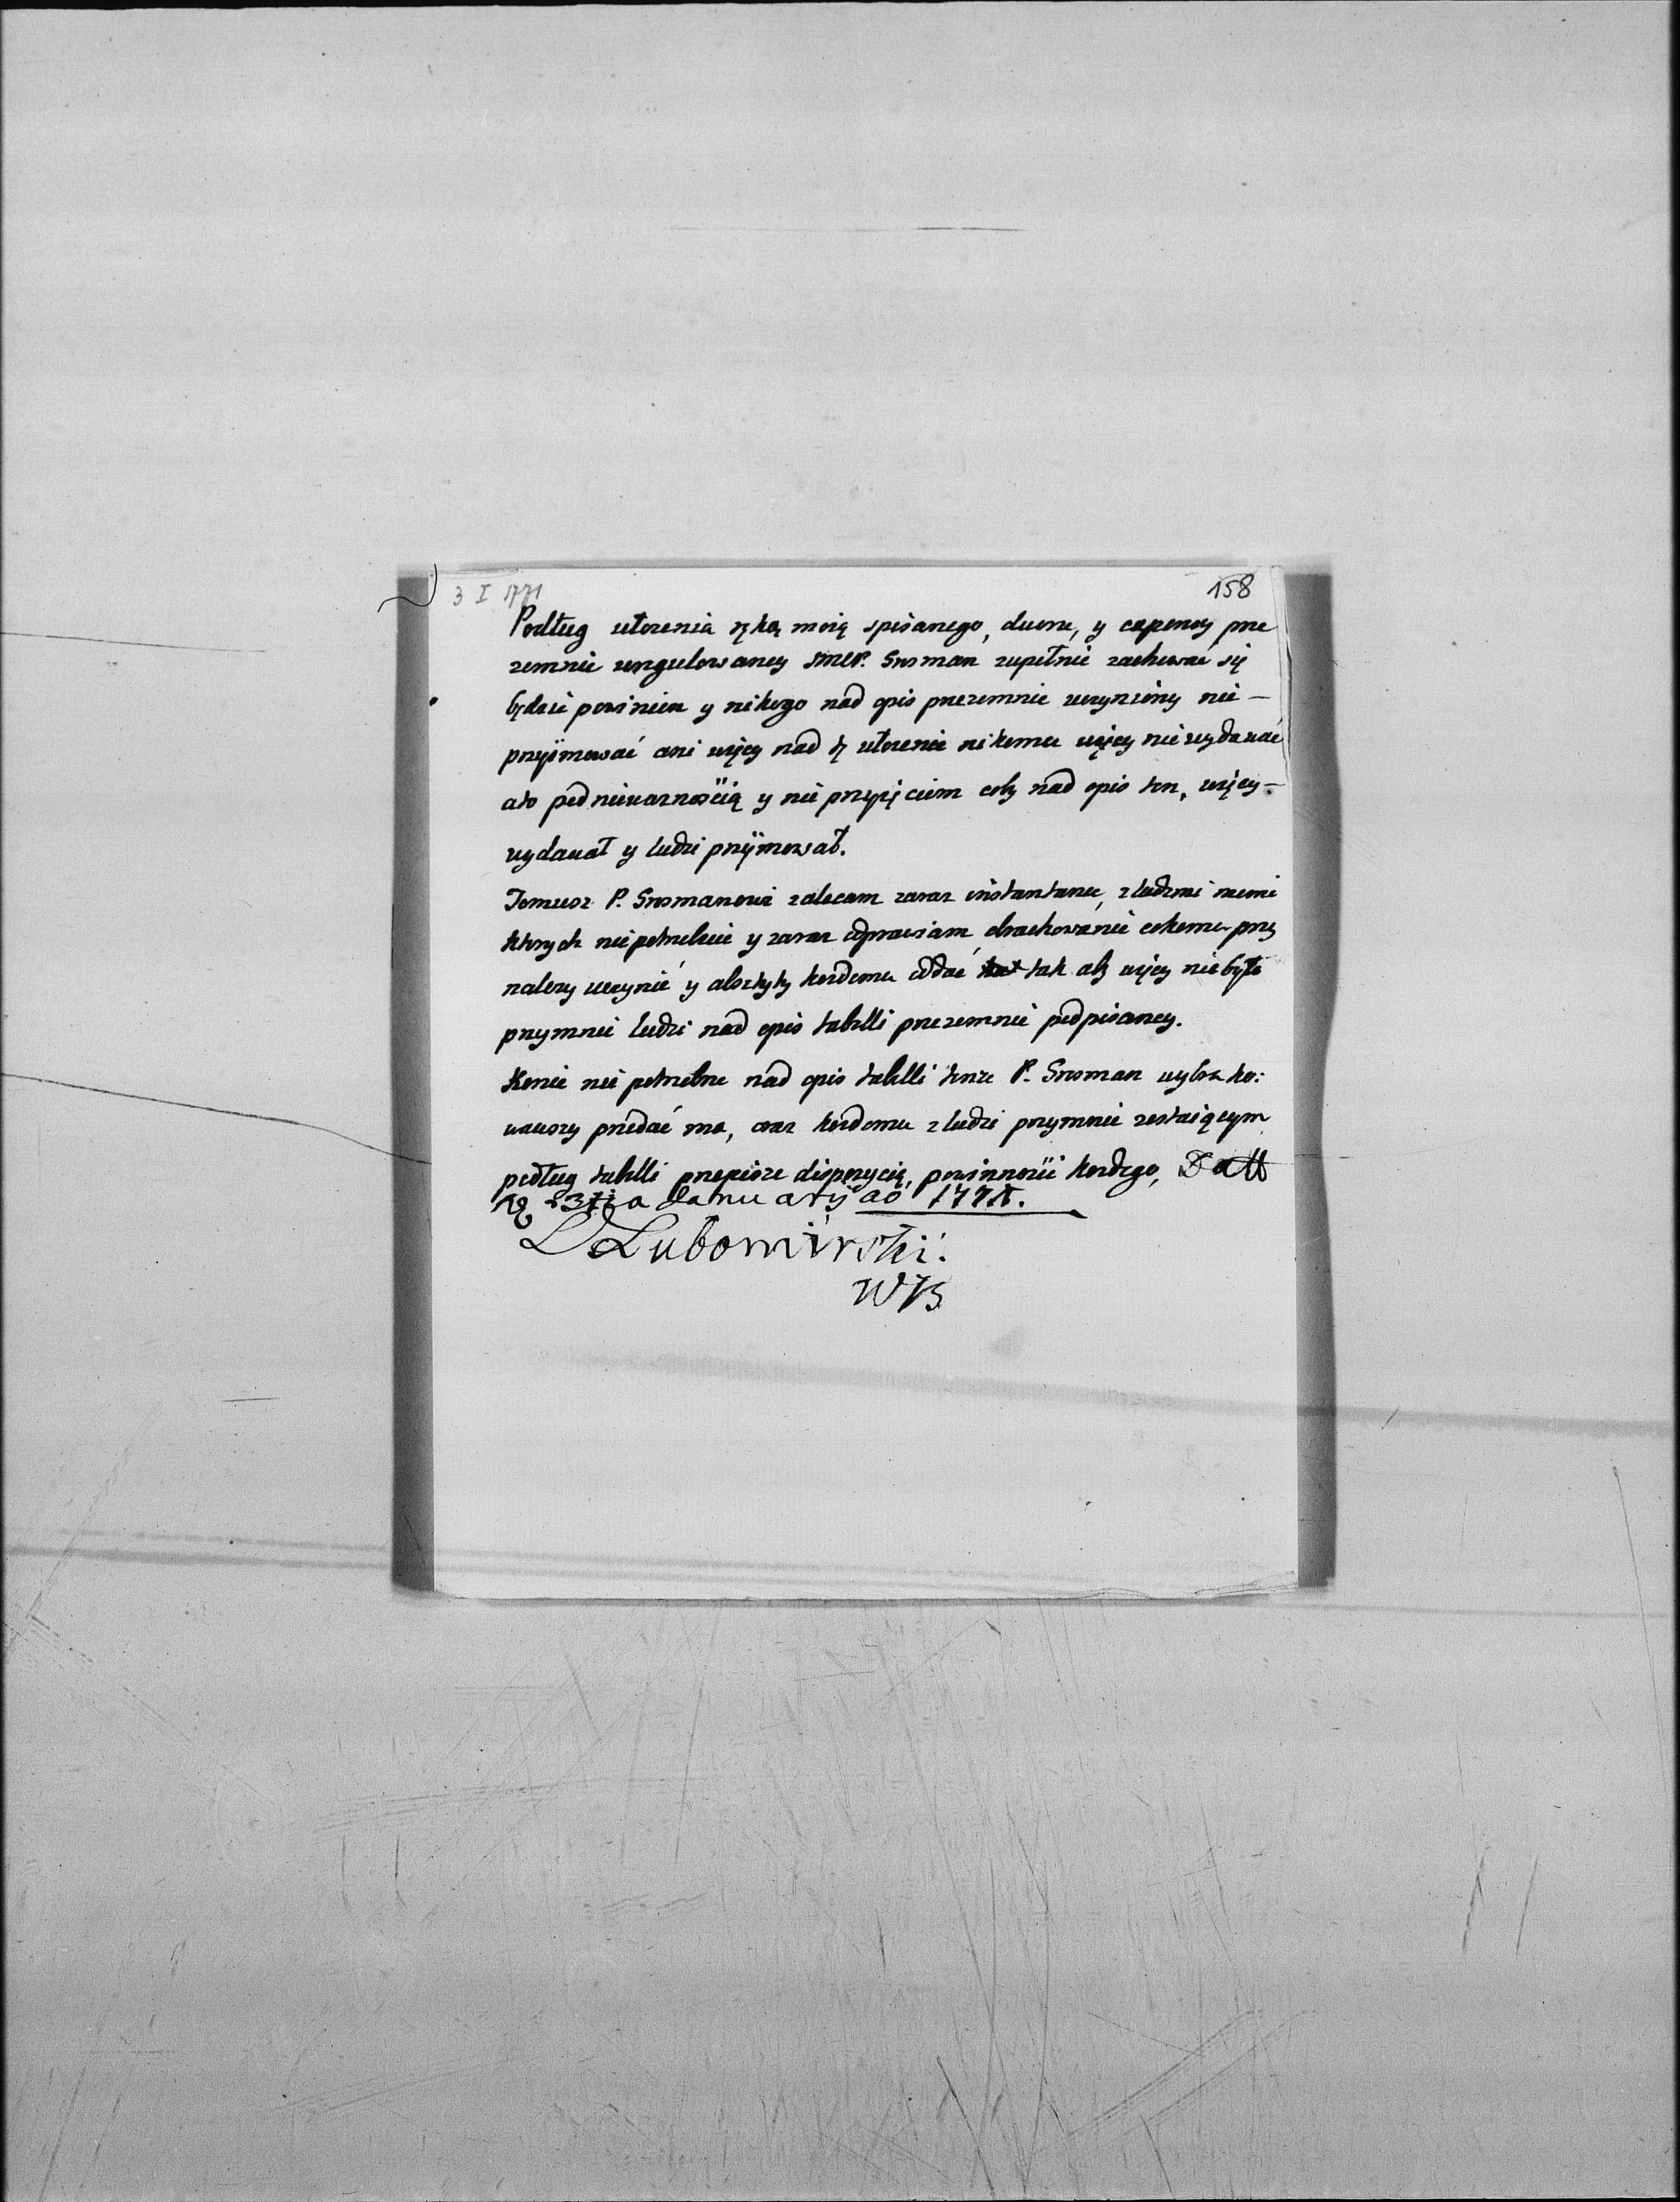 3 I 1771
158
Podług ułozenia ręką moią spisanego, dworu, y expensy prze
zemnie uregulowaney JMCP. Srosman zupełnie zachować się
będzie powinien y nikogo nad opis przezemnie uczyniony nie —
przyimować ani więcy nad te ułozenie nikomu więcy nie wydawać
a to pod nieważnością y nie przyięciem coby nad opis ten, więcy —
wydawał y ludzi przyimował.
Temusz P. Srosmanowi zalecam zaraz instantanee, z ludzmi memi
ktorych nie potrzebuie y zaraz odprawiam obrachowanie co komu przy
nalezy uczynić y abszyty kozdemu oddać tak aby więcy nie było
przymnie ludzi nad opis tabelli przezemnie podpisaney.
Konie nie potrzebne nad opis tabelli tenze P. Srosman wybrako:
wawszy przedać ma, oraz kozdemu z ludzi przymnie zostaiącym
podług tabelli przepisze disposycią, powinnosci kozdego, Datt
3tia Januaryi ao 1771.
Lubomirski.
WK